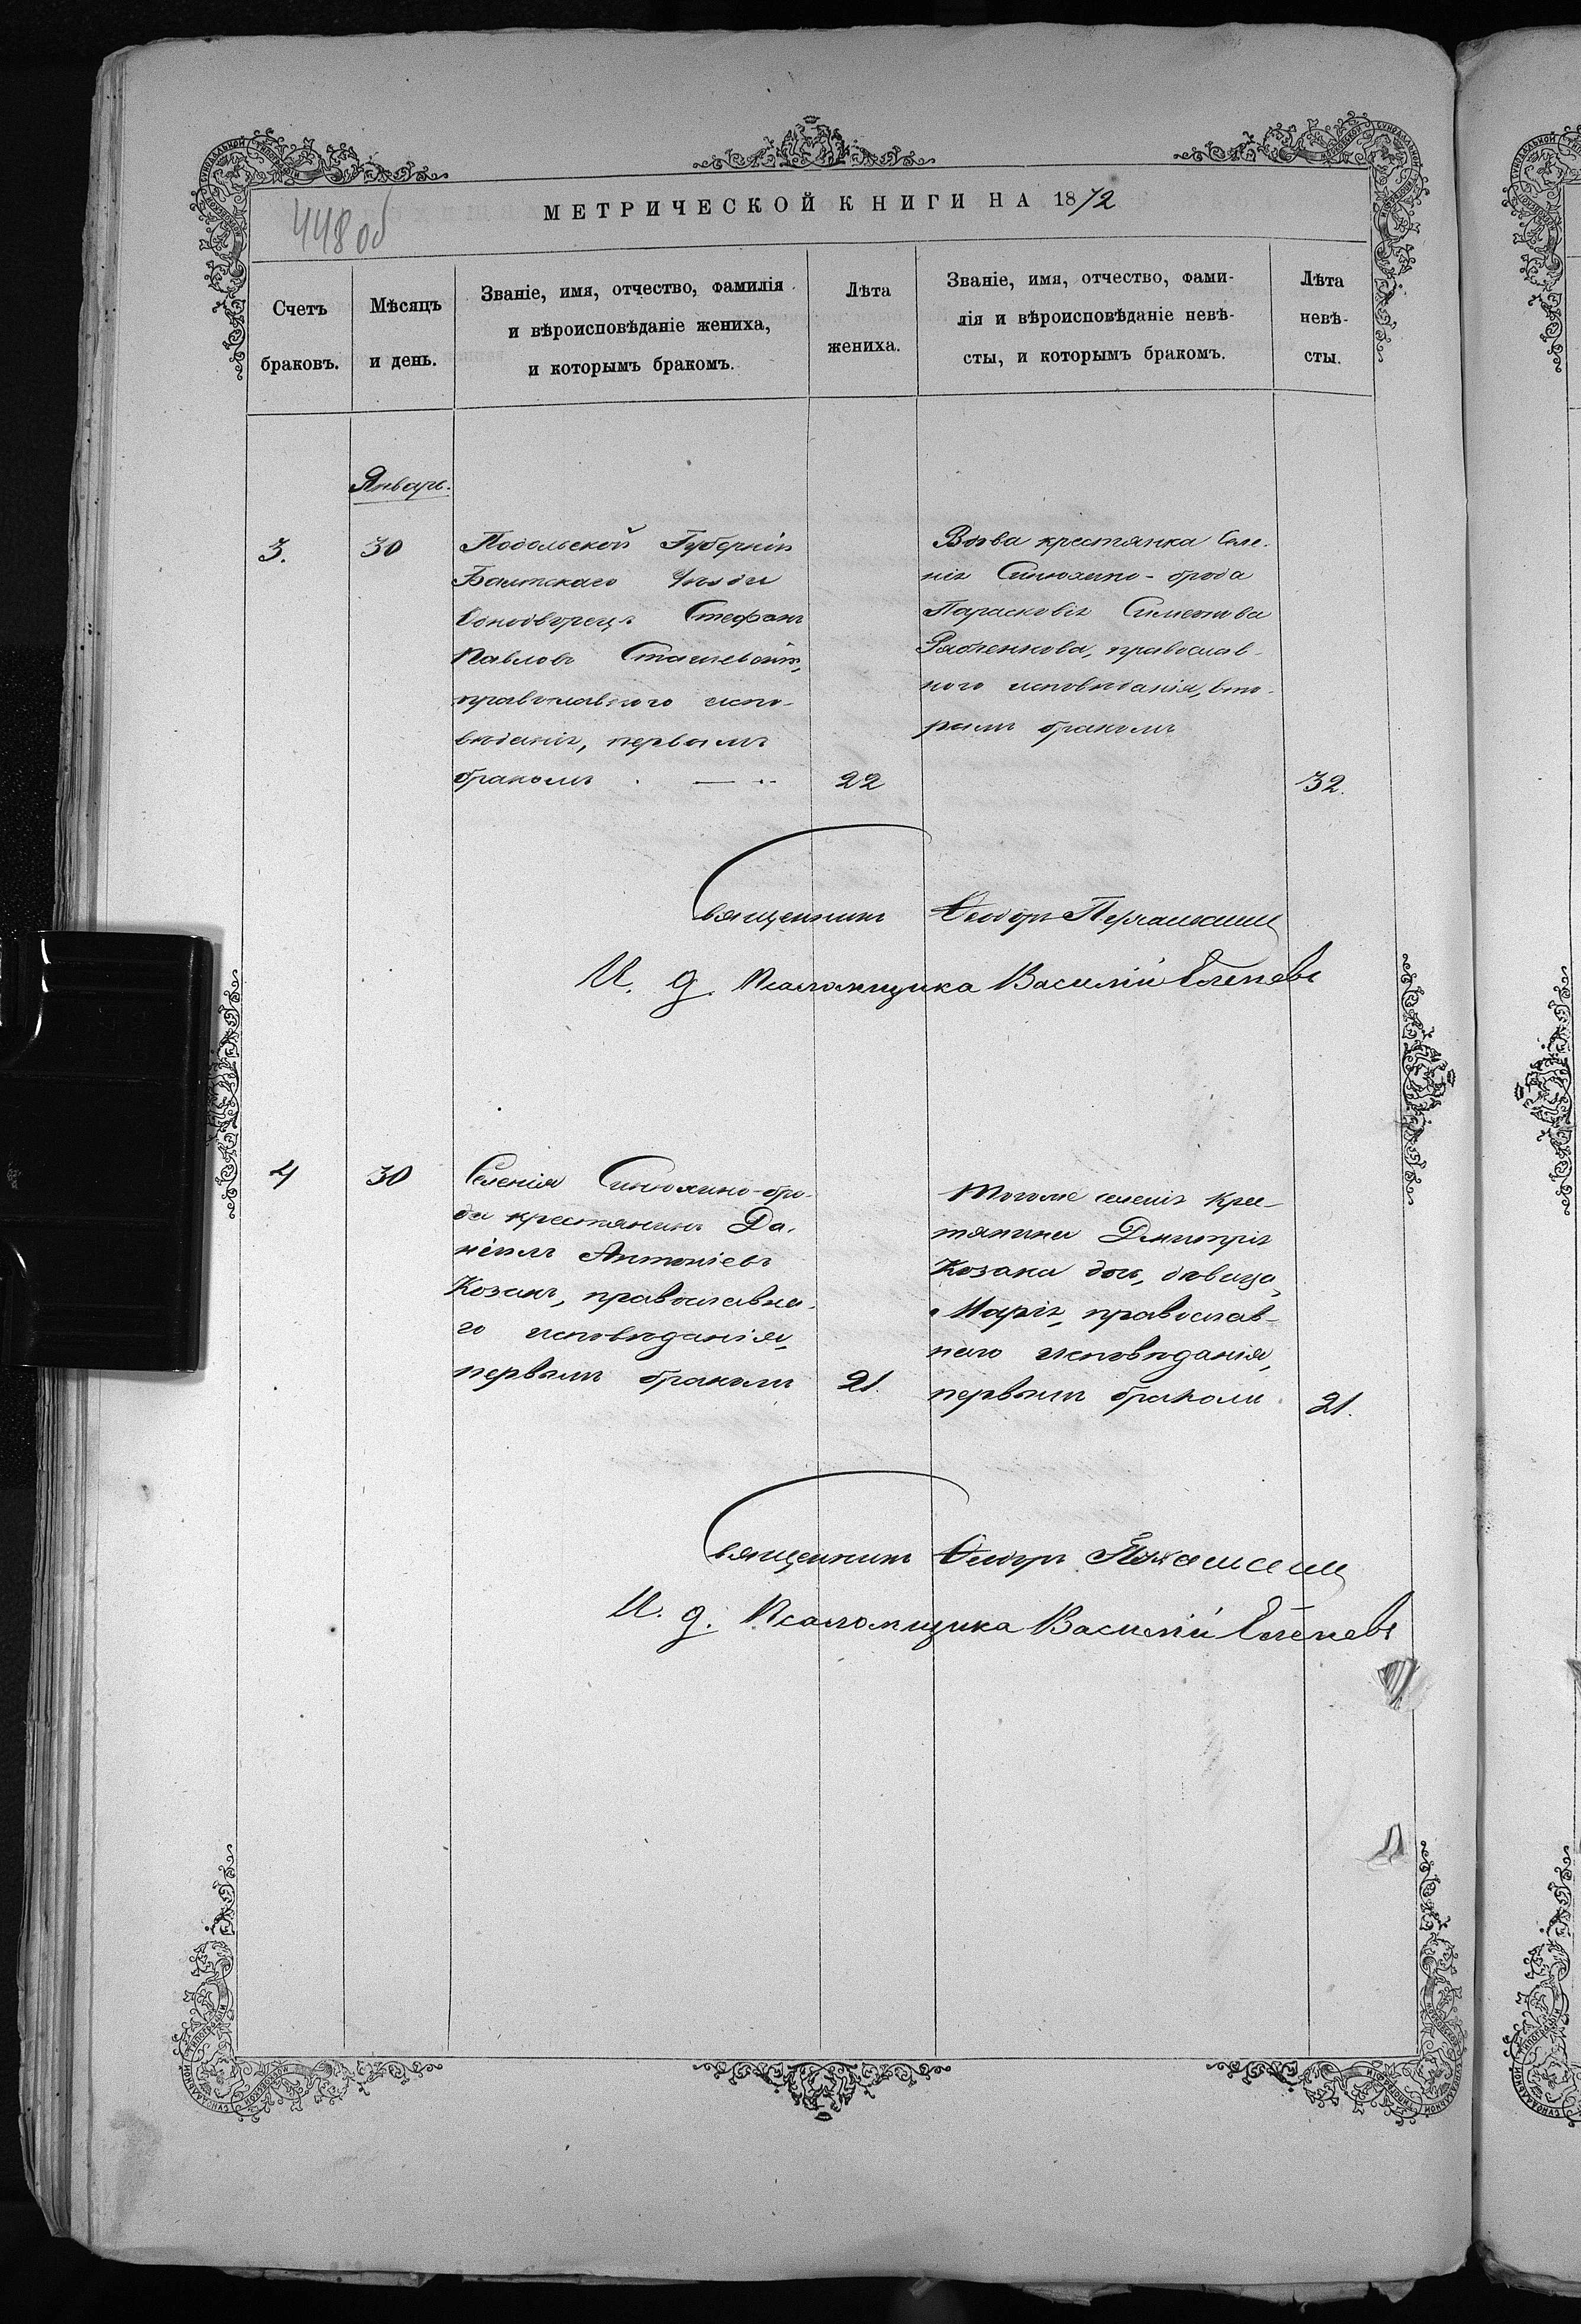 448 об
МЕТРИЧЕСКОЙ КНИГИ НА 1872
Счетъ браковъ.
Мѣсяцъ и день.
Званіе, имя, отчество, фамилія
и вѣроисповѣданіе жениха,
и которымъ бракомъ.
Лѣта жениха.
Званіе, имя, отчество, фами-
лія и вѣроисповѣданіе невѣ-
сты, и которымъ бракомъ.
Лѣта невѣ-
сты.
Январь.
3.
30
Подольской Губерніи
Балтскаго Уѣзда
Однодворецъ Стефанъ
Павловъ
православного испо-
вѣданія, первымъ
бракомъ
22
Вдова крестянка Селе-
нія Синюхино-брода
Параскевія Симеонова
православ-
ного исповѣданія, вто-
рымъ бракомъ
32.
Священникъ Ѳеодоръ
И. д. Псаломщика Василій
4
30
Селенія Синюхино-бро-
да крестянинъ Да-
ніилъ Антоніевъ
Козакъ, православна-
го исповѣданія,
первымъ бракомъ
21.
Тогоже селенія Крес-
тянина Димитрія
Козака дочь, дѣвица,
Марія, православ-
наго исповѣданія,
первымъ бракомъ
21.
Священникъ Ѳеодоръ
И. д. Псаломщика Василій